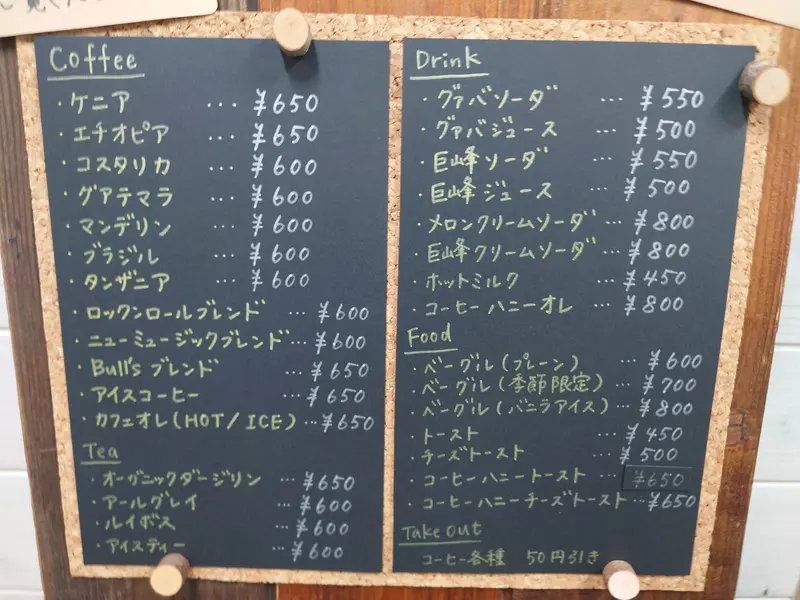 Coffee
・ケニア ... ¥650
・エチオピア ... ¥650
・コスタリカ ... ¥600
・グアテマラ ... ¥600
・マンデリン ... ¥600
・ブラジル ... ¥600
・タンザニア ... ¥600
・ロックンロールブレンド ... ¥600
・ニューミュージックブレンド... ¥600
・Bull's ブレンド ... ¥650
・アイスコーヒー ... ¥650
・カフェオレ(HOT/ICE) ...¥650
Tea
・オーガニックダージリン ... ¥650
・アールグレイ ... ¥600
・ルイボス ... ¥600
・アイスティー ... ¥600
Drink
・グァバソーダ ... ¥550
・グァバジュース ... ¥500
・巨峰ソーダ ... ¥550
・巨峰ジュース ... ¥500
・メロンクリームソーダ ... ¥800
・巨峰クリームソーダ ... ¥800
・ホットミルク ... ¥450
・コーヒーハニーオレ ... ¥800
Food
・ベーグル(プレーン) ... ¥600
・ベーグル(季節限定) ... ¥700
・ベーグル(バニラアイス) ... ¥800
・トースト ... ¥450
・チーズトースト ... ¥500
・コーヒーハニートースト ¥650
・コーヒーハニーチーズトースト ...¥650
Take out
コーヒー各種 50円引き